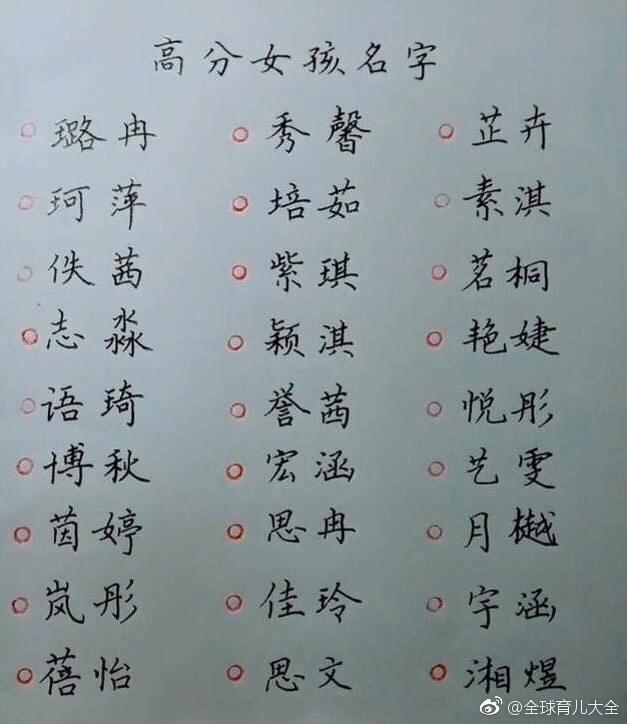 高分女孩名字
璐冉 秀馨 芷卉
珂萍 培茹 素淇
佚茜 紫琪 茗桐
志淼 颖淇 艳婕
语琦 誉茜 悦彤
博秋 宏涵 艺雯
茵婷 思冉 月樾
岚彤 佳玲 宇涵
蓓怡 思文 湘煜
@全球育儿大全